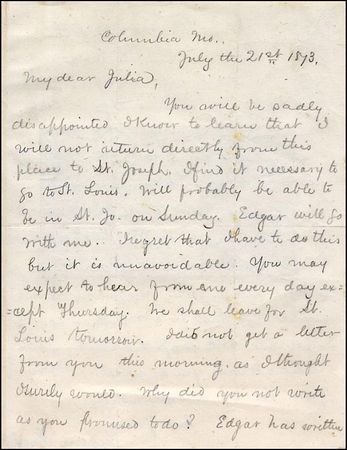 Columbia Mo.,
July the 21st 1873.
My dear Julia,
You will be sadly
disappointed I know to learn that I
will not return directly from this
place to St. Joseph. I find it necessary to
go to St. Louis. Will probably be able to
be in St. Jo. on Sunday. Edgar will go
with me. I regret that I have to do this
but it is unavoidable. You may
expect to hear from me every day ex=
=cept Thursday. We shall leave for St.
Louis tomorrow. I did not get a letter
from you this morning, as I thought
I surely would. Why did you not write
as you promised to do? Edgar has written